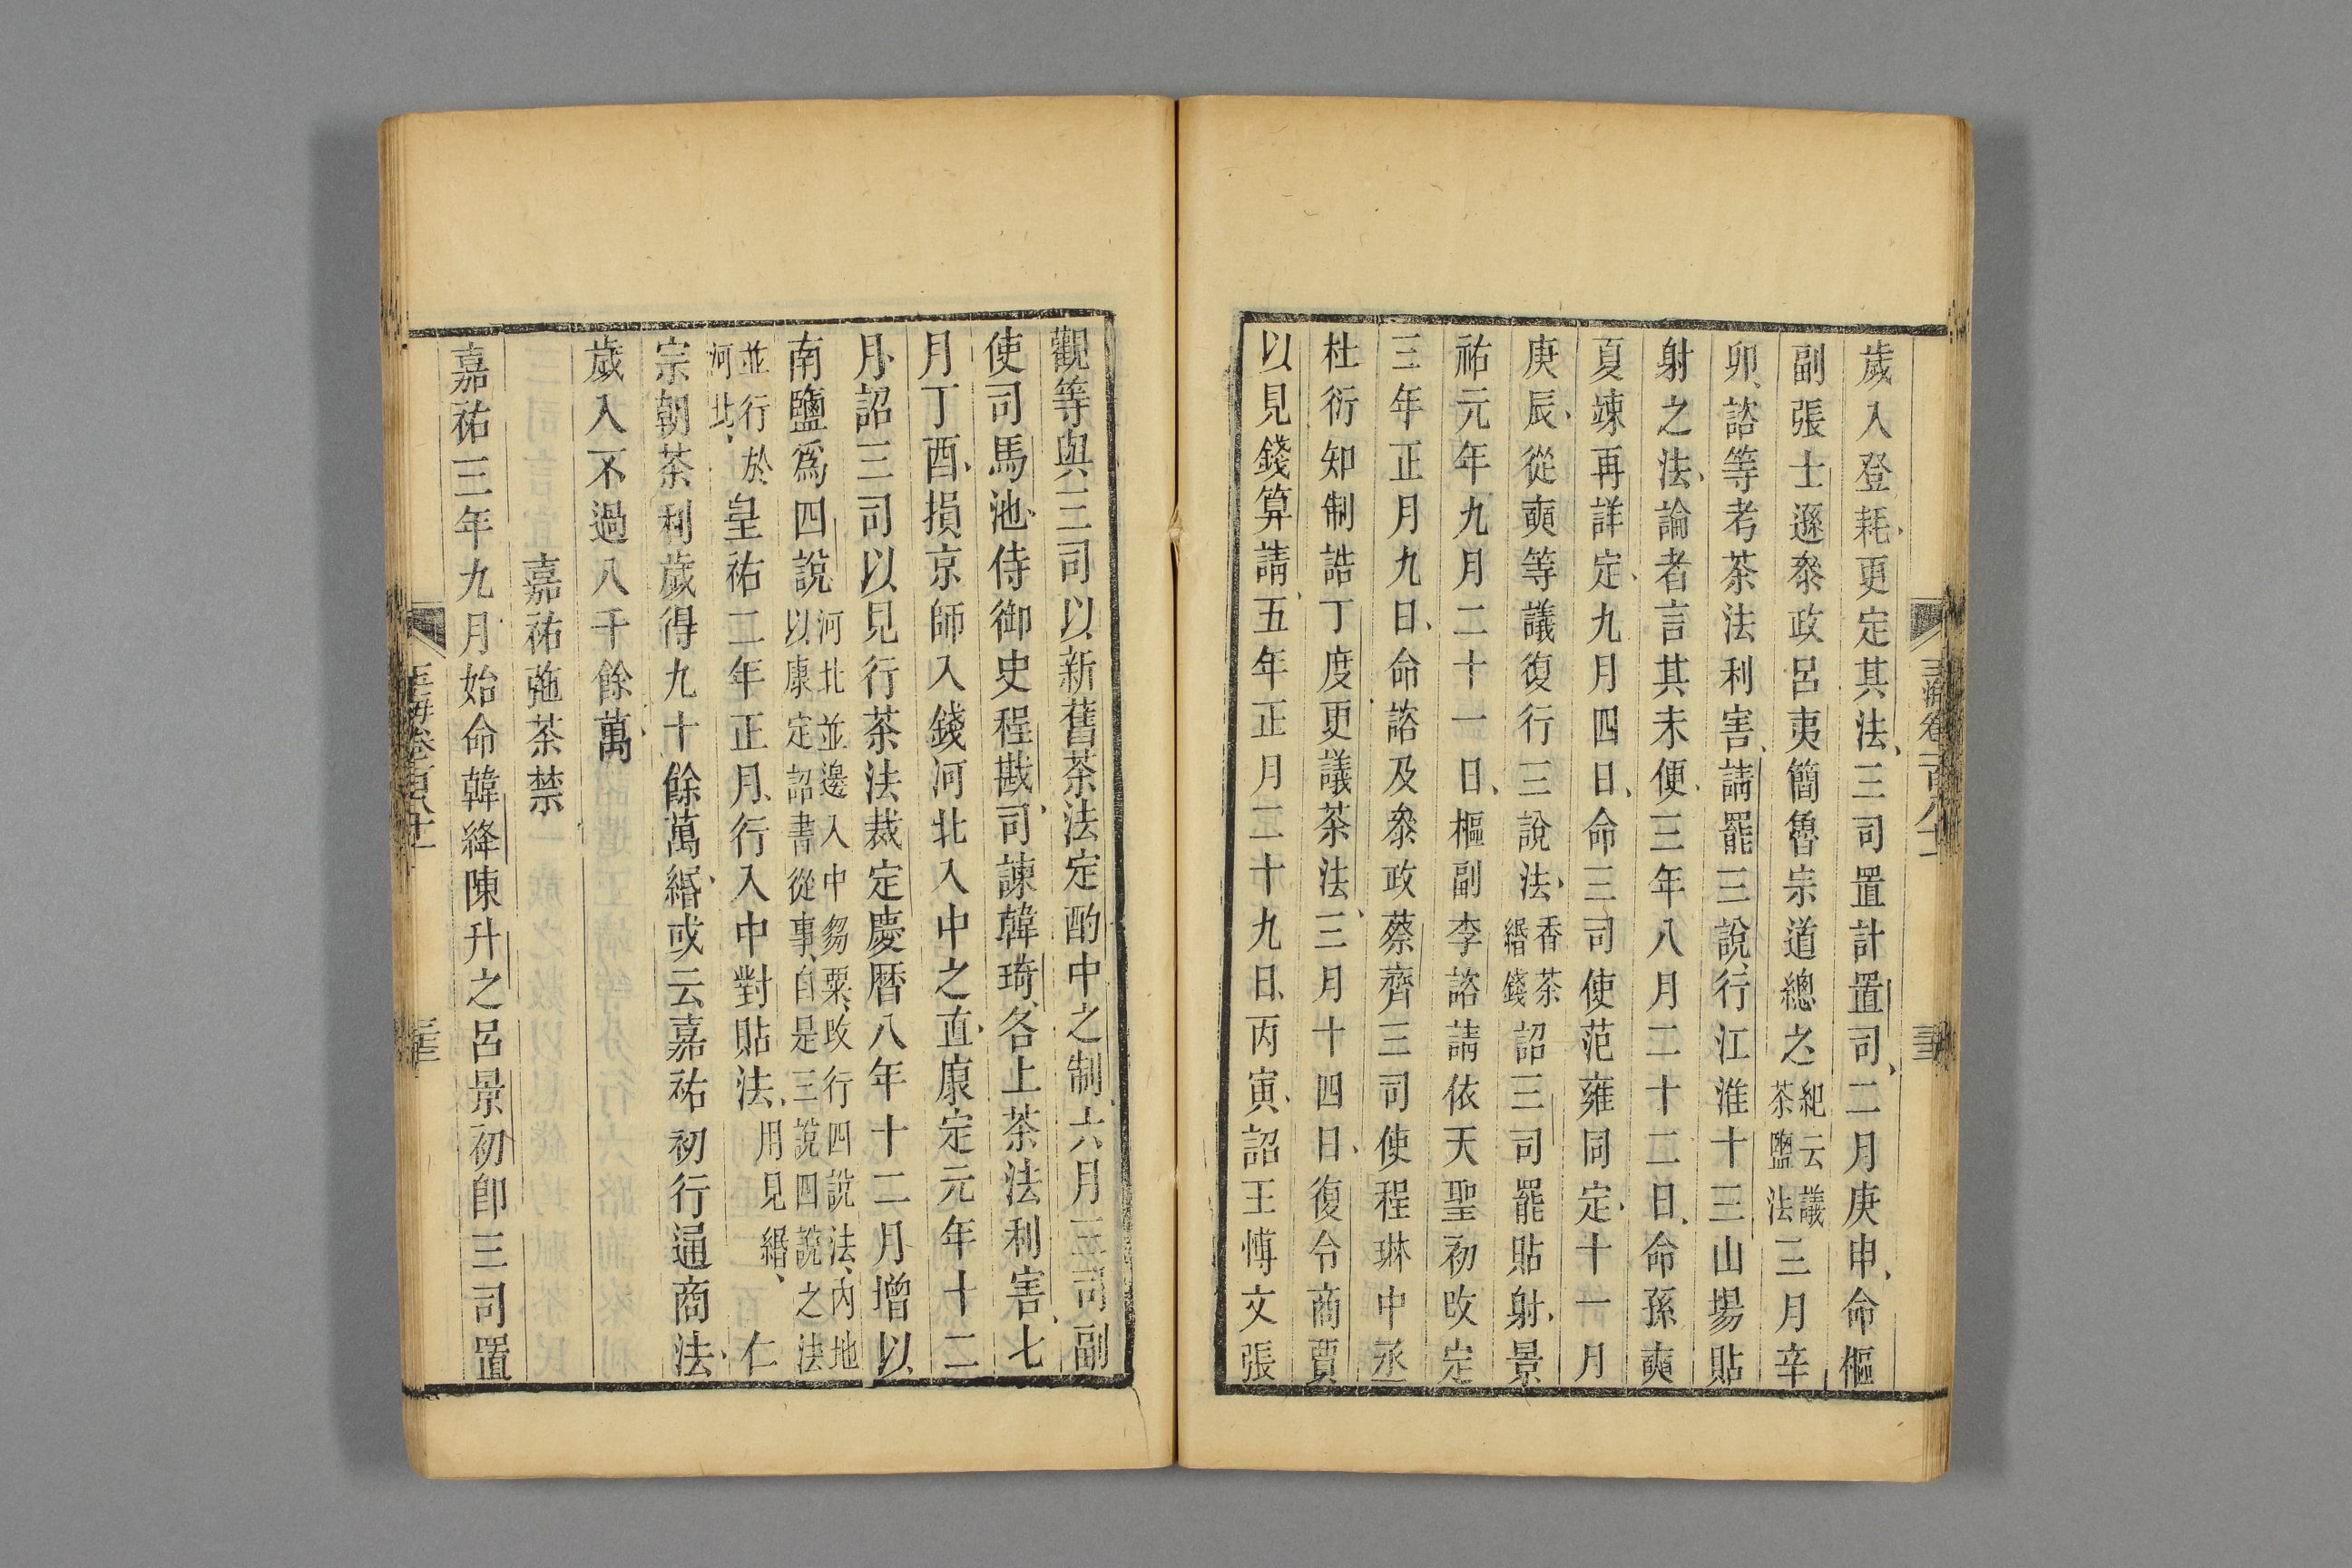 歲入登耗、更定其法、三司置計置司、二月庚申、命樞
副張士遜叅政呂夷簡魯宗道總之、紀云議茶鹽法三月辛
卯、諮等考茶法利害、請罷三說、行江淮十三山場貼
射之法、論者言其未便、三年八月二十二日、命孫奭
夏竦再詳定、九月四日、命三司使范雍同定、十一月
庚辰、從奭等議復行三說法、香茶緡錢詔三司罷貼射、景
祐元年九月二十一日、樞副李諮請依天聖初改定
三年正月九日、命諮及叅政蔡齊三司使程琳中丞
杜衍知制誥丁度更議茶法、三月十四日、復令商賈
以見錢算請、五年正月二十九日、丙寅、詔王博文張
觀等與三司以新舊茶法定酌中之制、六月三司副
使司馬池、侍御史程戡、司諫韓琦、各上茶法利害、七
月丁酉、損京師入錢河北入中之直、康定元年十二
月、詔三司以見行茶法裁定慶曆八年十二月增以
南鹽爲四說、河北並邊入中芻粟、改行四說法、內地以康定詔書從事、自是三說四說之法
並行於河北、皇祐二年正月、行入中對貼法、用見緡、仁
宗朝茶利歲得九十餘萬緡、或云嘉祐初行通商法、
歲入不過八千餘萬、
嘉祐弛茶禁
嘉祐三年九月、始命韓絳陳升之呂景初卽三司置
玉海卷一百八十一
三十三